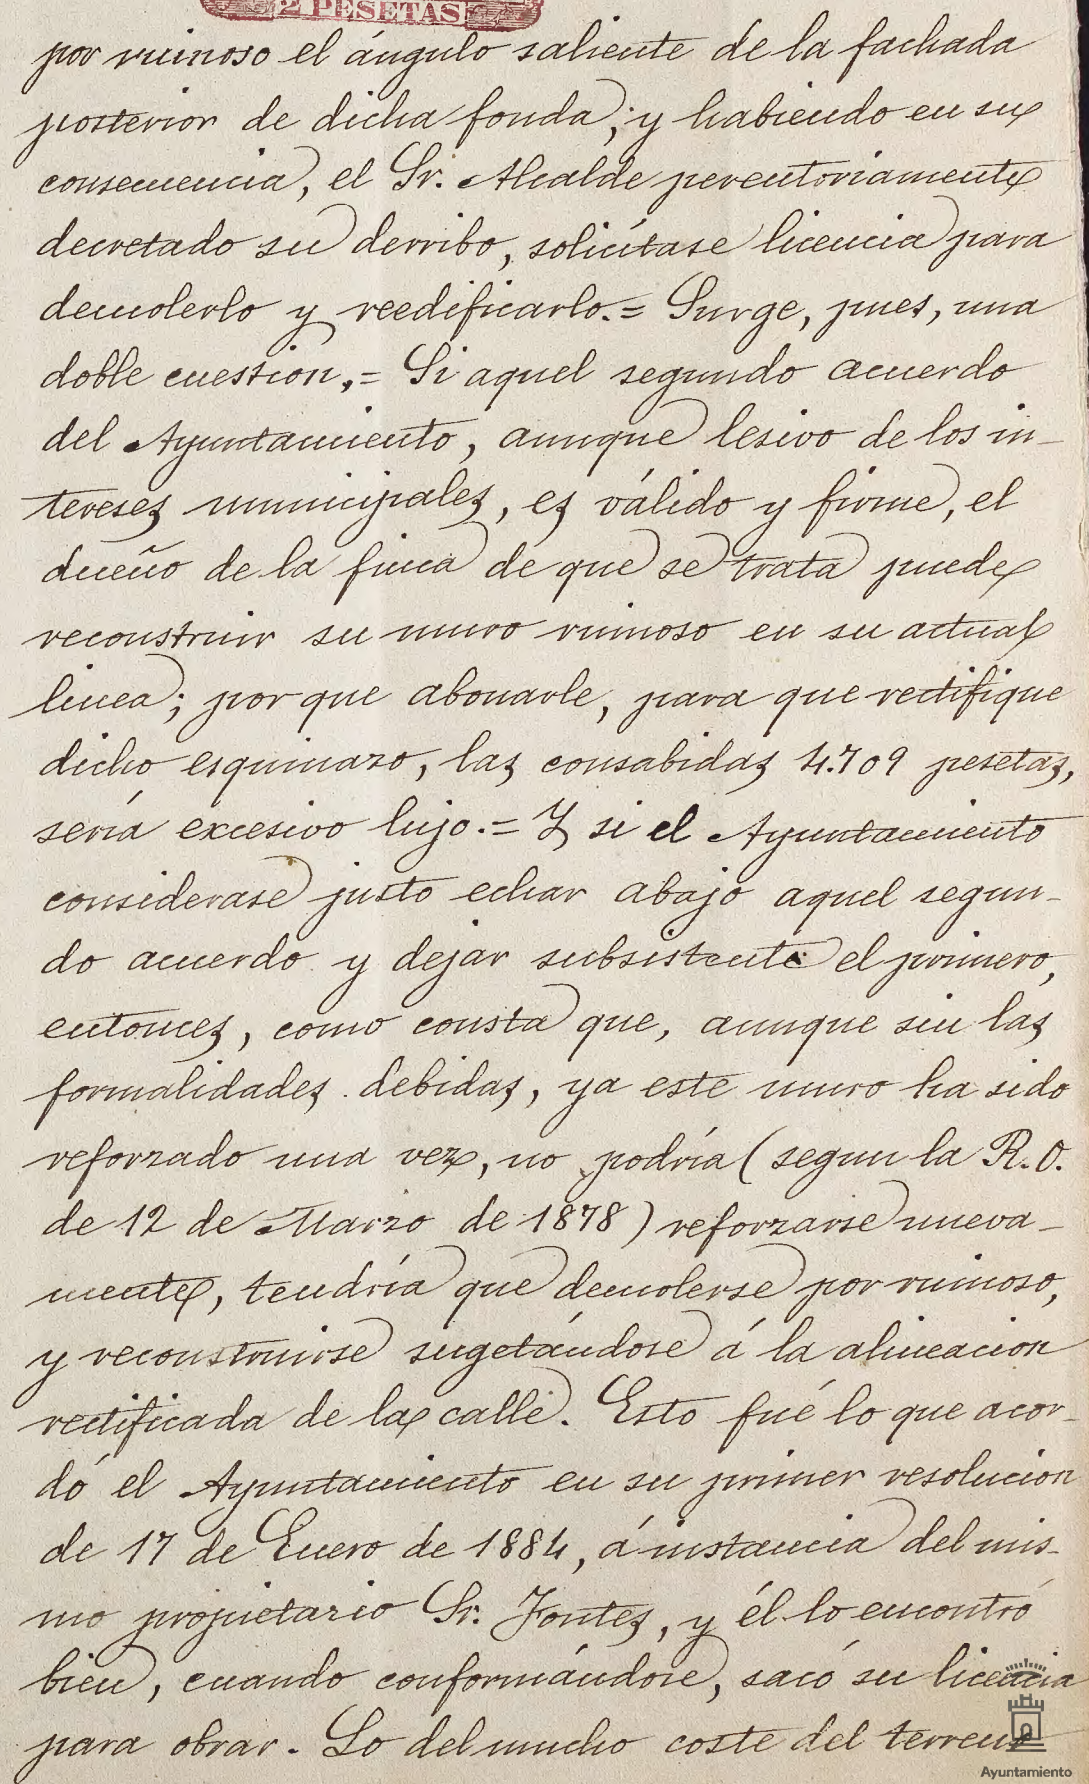 2 PESETAS
por ruinoso el ángulo saliente de la fachada
posterior de dicha fonda; y habiendo en su
consecuencia, el Sr. Alcalde perentoriamente
decretado su derribo, solicítase licencia para
demolerlo y reedificarlo.= Surge, pues, una
doble cuestion,= Si aquel segundo acuerdo
del Ayuntamiento, aunque lesivo de los in-
tereses municipales, es válido y firme, el
dueño de la finca de que se trata puede
reconstruir su muro ruinoso en su actual
linea; por que abonarle, para que rectifique
dicho esquinazo, las consabidas 4.709 pesetas,
sería excesivo lujo.= Y si el Ayuntamiento
considerase justo echar abajo aquel segun-
do acuerdo y dejar subsistente el primero,
entonces, como consta que, aunque sin las
formalidades debidas, ya este muro ha sido
reforzado una vez, no podría (segun la R.O.
de 12 de Marzo de 1878) reforzarse nueva-
mente, tendría que demolerse por ruinoso,
y reconstruirse sugetándose á la alineacion
rectificada de la calle. Esto fué lo que acor-
dó el Ayuntamiento en su primer resolucion
de 17 de Enero de 1884, á instancia del mis-
mo propietario Sr. Fontes, y él lo encontró
bien, cuando conformándose, sacó su licencia
para obrar. Lo del mucho coste del terreno
Ayuntamiento